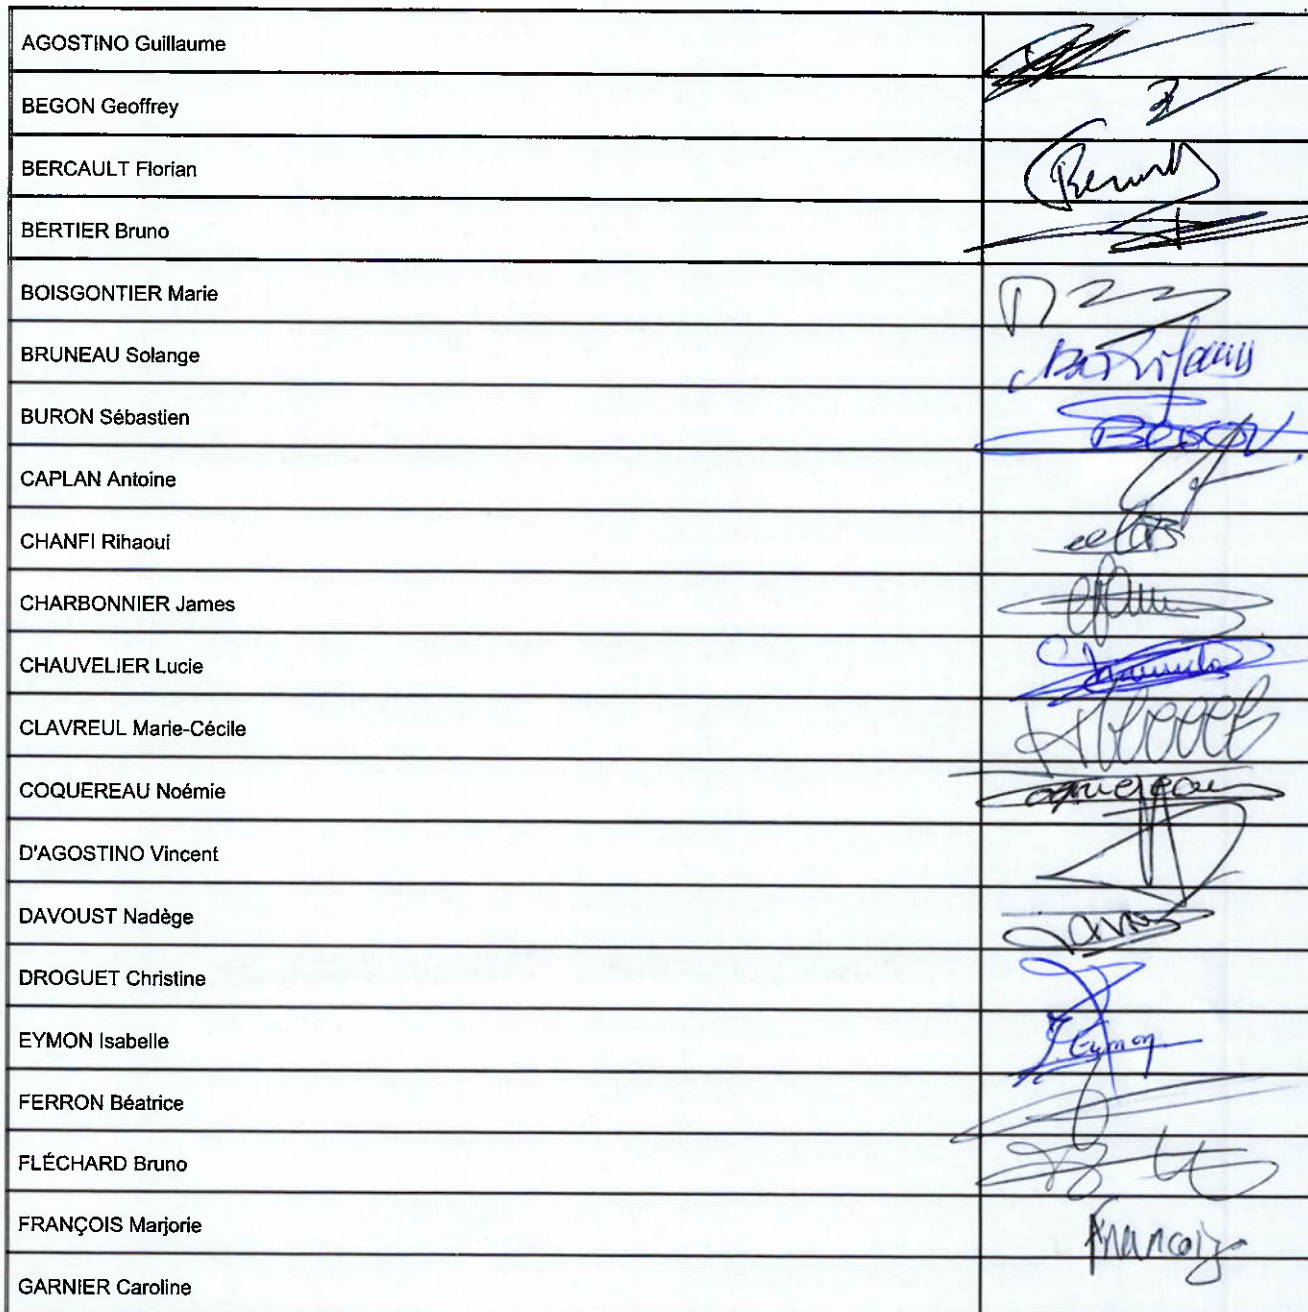 AGOSTINO Guillaume
BEGON Geoffrey
BERCAULT Florian
BERTIER Bruno
BOISGONTIER Marie
BRUNEAU Solange
BURON Sébastien
CAPLAN Antoine
CHANFI Rihaoui
CHARBONNIER James
CHAUVELIER Lucie
CLAVREUL Marie-Cécile
COQUEREAU Noémie
D'AGOSTINO Vincent
DAVOUST Nadège
DROGUET Christine
EYMON Isabelle
Eymon
FERRON Béatrice
FLÉCHARD Bruno
FRANÇOIS Marjorie
François
GARNIER Caroline